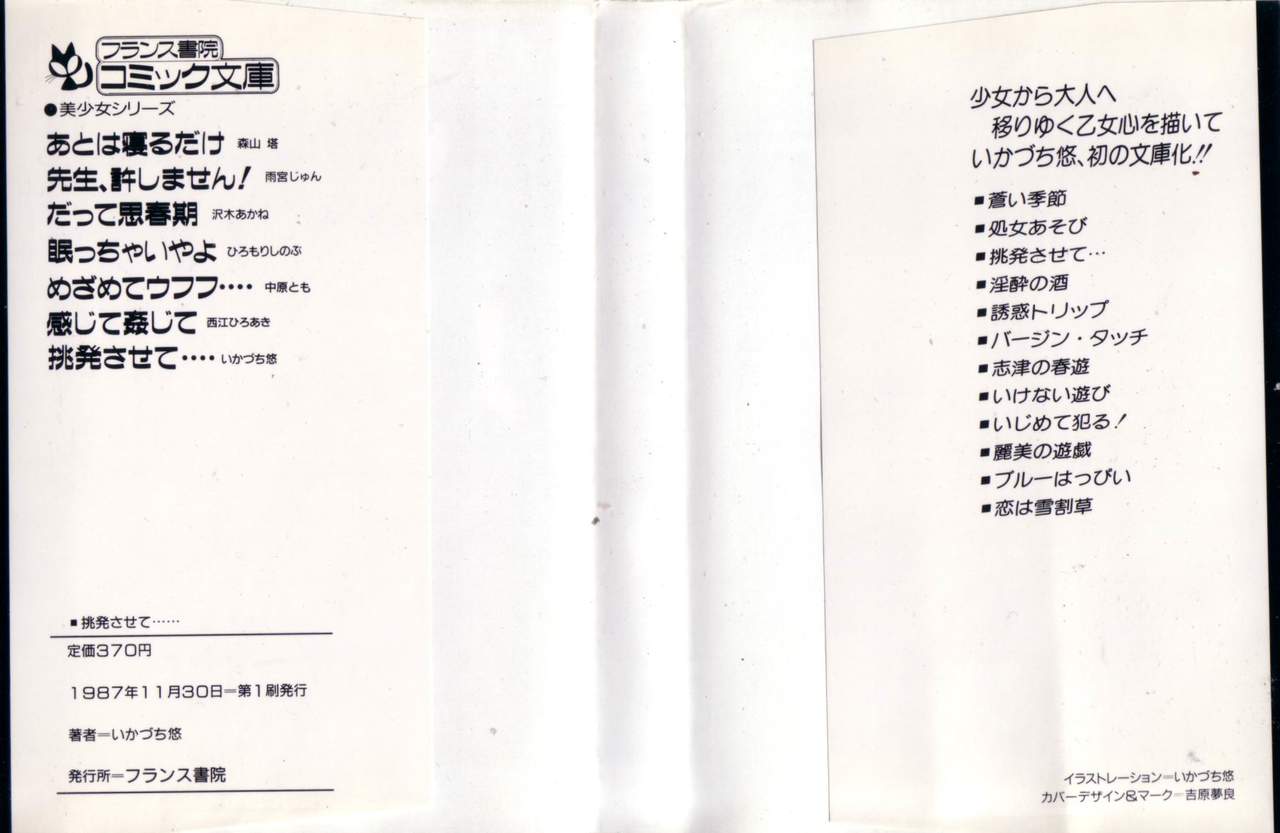 フランス書院
コミック文庫
●美少女シリーズ
あとは寝るだけ 森山 塔
先生、許しません! 雨宮じゅん
だって思春期 沢木あかね
眠っちゃいやよ ひろもりしのぶ
めざめてウフフ・・・・ 中原とも
感じて姦じて 西江ひろあき
挑発させて・・・・ いかづち悠
■挑発させて……
定価370円
1987年11月30日=第1刷発行
著者=いかづち悠
発行所=フランス書院
少女から大人へ
移りゆく乙女心を描いて
いかづち悠、初の文庫化!!
■蒼い季節
■処女あそび
■挑発させて…
■淫酔の酒
■誘惑トリップ
■バージン・タッチ
■志津の春遊
■いけない遊び
■いじめて犯る!
■麗美の遊戯
■ブルーはっぴい
■恋は雪割草
イラストレーション=いかづち悠
カバーデザイン&マーク=吉原夢良